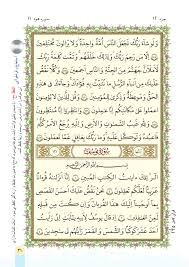 وَلَوْ شَاءَ رَبُّكَ لَجَعَلَ النَّاسَ أُمَّةً وَاحِدَةً وَلَا يَزَالُونَ مُخْتَلِفِينَ
إِلَّا مَن رَّحِمَ رَبُّكَ وَلِذَٰلِكَ خَلَقَهُمْ وَتَمَّتْ كَلِمَةُ رَبِّكَ
لَأَمْلَأَنَّ جَهَنَّمَ مِنَ الْجِنَّةِ وَالنَّاسِ أَجْمَعِينَ وَكُلًّا نَّقُصُّ
عَلَيْكَ مِنْ أَنبَاءِ الرُّسُلِ مَا نُثَبِّتُ بِهِ فُؤَادَكَ وَجَاءَكَ فِي
هَٰذِهِ الْحَقُّ وَمَوْعِظَةٌ وَذِكْرَىٰ لِلْمُؤْمِنِينَ وَقُل لِّلَّذِينَ
لَا يُؤْمِنُونَ اعْمَلُوا عَلَىٰ مَكَانَتِكُمْ إِنَّا عَامِلُونَ وَانتَظِرُوا
إِنَّا مُنتَظِرُونَ وَلِلَّهِ غَيْبُ السَّمَاوَاتِ وَالْأَرْضِ وَإِلَيْهِ يُرْجَعُ
الْأَمْرُ كُلُّهُ فَاعْبُدْهُ وَتَوَكَّلْ عَلَيْهِ وَمَا رَبُّكَ بِغَافِلٍ عَمَّا تَعْمَلُونَ
سُورَةُ يُوسُفَ
بِسْمِ اللَّهِ الرَّحْمَٰنِ الرَّحِيمِ
الر تِلْكَ آيَاتُ الْكِتَابِ الْمُبِينِ إِنَّا أَنزَلْنَاهُ قُرْآنًا
عَرَبِيًّا لَّعَلَّكُمْ تَعْقِلُونَ نَحْنُ نَقُصُّ عَلَيْكَ أَحْسَنَ الْقَصَصِ
بِمَا أَوْحَيْنَا إِلَيْكَ هَٰذَا الْقُرْآنَ وَإِن كُنتَ مِن قَبْلِهِ
لَمِنَ الْغَافِلِينَ إِذْ قَالَ يُوسُفُ لِأَبِيهِ يَا أَبَتِ إِنِّي رَأَيْتُ
أَحَدَ عَشَرَ كَوْكَبًا وَالشَّمْسَ وَالْقَمَرَ رَأَيْتُهُمْ لِي سَاجِدِينَ